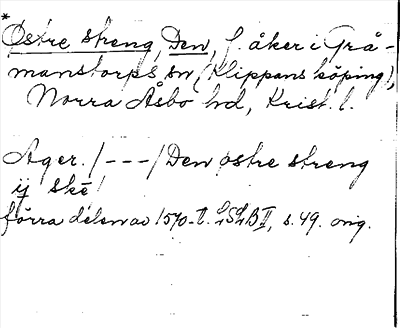 *
Østre streng, Den, f. åker i Grå-
manstorps sn (Klippans köping),
Norra Åsbo hd, Krist. l.
Ager. /---/ Den østre streng
ij skē!
förra delen av 1570-t. LSLB II, s. 49. orig.